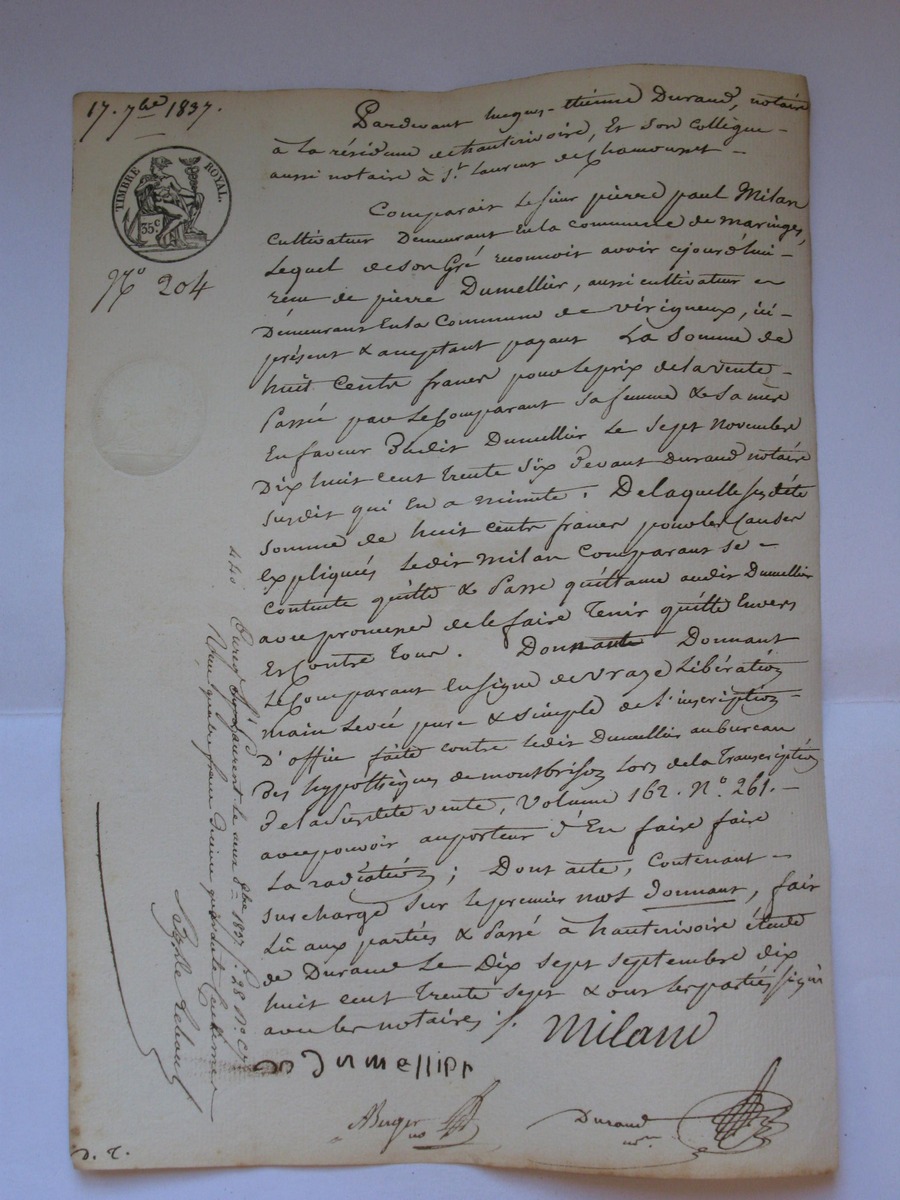 17. 7bre 1837.
TIMBRE ROYAL.
35c
No 204
Pardevant hugues-thienne Durand, notaire
à La résidence de hauterivoire, Et son Collègue -
aussi notaire à St. Laurent de Chamousset -
Comparait Le sieur pierre paul Milan
Cultivateur Demeurant En la commune de maringes,
Lequel de son Gré reconnoit avoir cejourd'hui -
réçu de pierre Dumellier, aussi cultivateur
Demeurant En la Commune de Virigneux, ici -
présent & acceptant payant La Somme de
huit Cents francs pour Le prix de la vente -
Passée par Le Comparant Sa femme & Sa mère
En faveur Dudit Dumellier Le Sept Novembre
Dix huit cent trente Six Devant Durand notaire
Susdit qui En a minute. De laquelle susdite
Somme de huit cents francs pour les Causes
Expliquées Ledit Milan Comparant se -
Contente quitte & Passe quittance audit Dumellier
avec promesse de le faire Tenir quitte Envers
Et Contre Tous. Donnant Donnant
Le Comparant En signe de vraye Libération
main Levée pure & simple de L'inscription -
D'office faite Contre Ledit Dumellier au bureau
Des hypothèques de montbrison Lors de la Transcription
De la Susdite vente, Volume 162. No. 261. -
avec pouvoir au porteur D'En faire faire
La radiation; Dont acte, Contenant -
surcharge sur Le premier mot donnant, fait
Lû aux parties & Passé à hauterivoire étude
de Durand Le Dix Sept Septembre dix
huit cent trente Sept & ont les parties signé
avec les notaires ./.
Miland
Dumellier
Durand
D. T.
St Laurent le onze 8bre 1837. f. 28 Ro C.